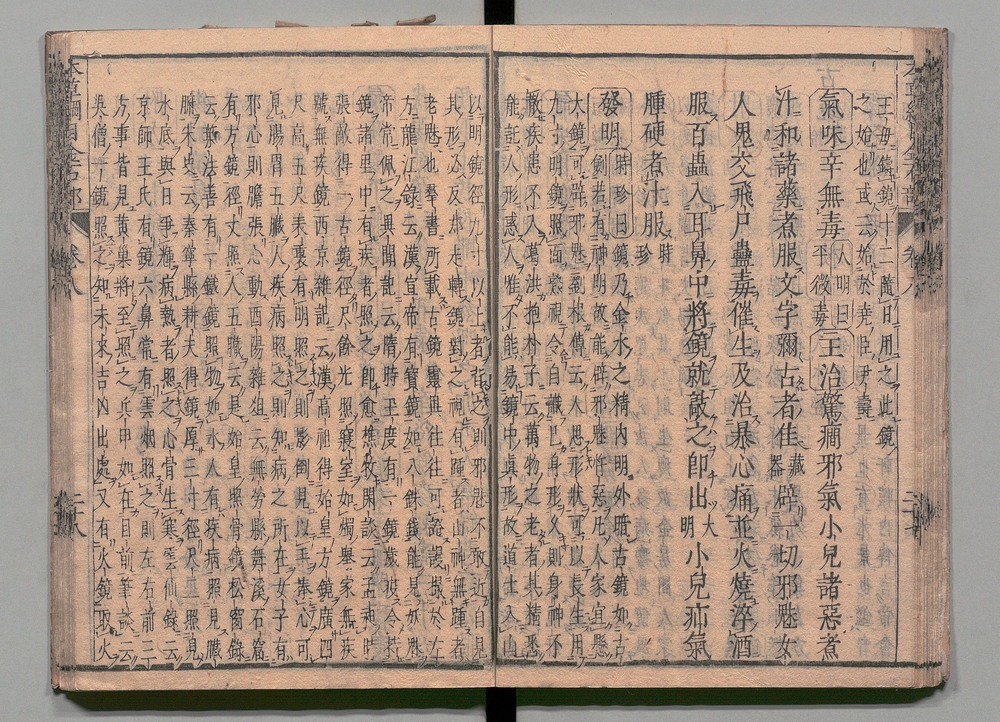 王毋鑄鏡十二隨日用之此鏡
之始也或云始於堯臣尹壽
氣味辛無毒大明曰平微毒主治驚癇邪氣小兒諸惡煮
汁和諸藥煮服文字彌古者佳藏器辟一切邪魅女
人鬼交飛尸蠱毒催生及治暴心痛並火燒淬酒
服百蟲入耳鼻中將鏡就敲之卽出大明小兒疝氣
腫硬煮汁服時珍
發明時珍曰鏡乃金水之精內明外暗古鏡如古
劍若有神明故能辟邪魅忤惡凡人家宜懸
大鏡可辟邪魅劉根傳云人思形狀可以長生用
九寸明鏡照面熟視令自識己身形久則身神不
散疾患不入葛洪抱朴子云萬物之老者其精悉
能託人形惑人唯不能易鏡中真形故道士入山
以明鏡徑九寸以上者背之則邪魅不敢近自見
其形必反却走轉鏡對之視有踵者山神無踵者
老魅也羣書所載古鏡靈異往往可證謾撮於左
方龍江錄云漢宣帝有寶鏡如八銖錢能見妖魅
帝常佩之異聞記云隋時王度有一鏡歲疫令持
鏡詣里中有疾者照之卽愈樵牧閑談云孟昶時
張敵得一古鏡徑尺餘光照寢室如燭舉家無疾
號無疾鏡西京雜記云漢高祖得始皇方鏡廣四
尺高五尺表裏有明照之則影倒見以手捧心可
見腸胃五臟人疾病照之則知病之所在女子有
邪心則膽張心動酉陽雜俎云無勞縣舞溪石窟
有方鏡徑丈照人五臟云是始皇照骨鏡松窗錄
云葉法善有一鐵鏡照物如水人有疾病照見臟
腑宋史云秦寧縣耕夫得鏡厚三寸徑尺二照見
水底與日爭輝病熱者照之心骨生寒雲仙錄云
京師王氏有鏡六鼻常有雲烟照之則左右前三
方事皆見黃巢將至照之兵甲如在目前筆談云
吳僧一鏡照之知未來吉凶出處又有火鏡取火